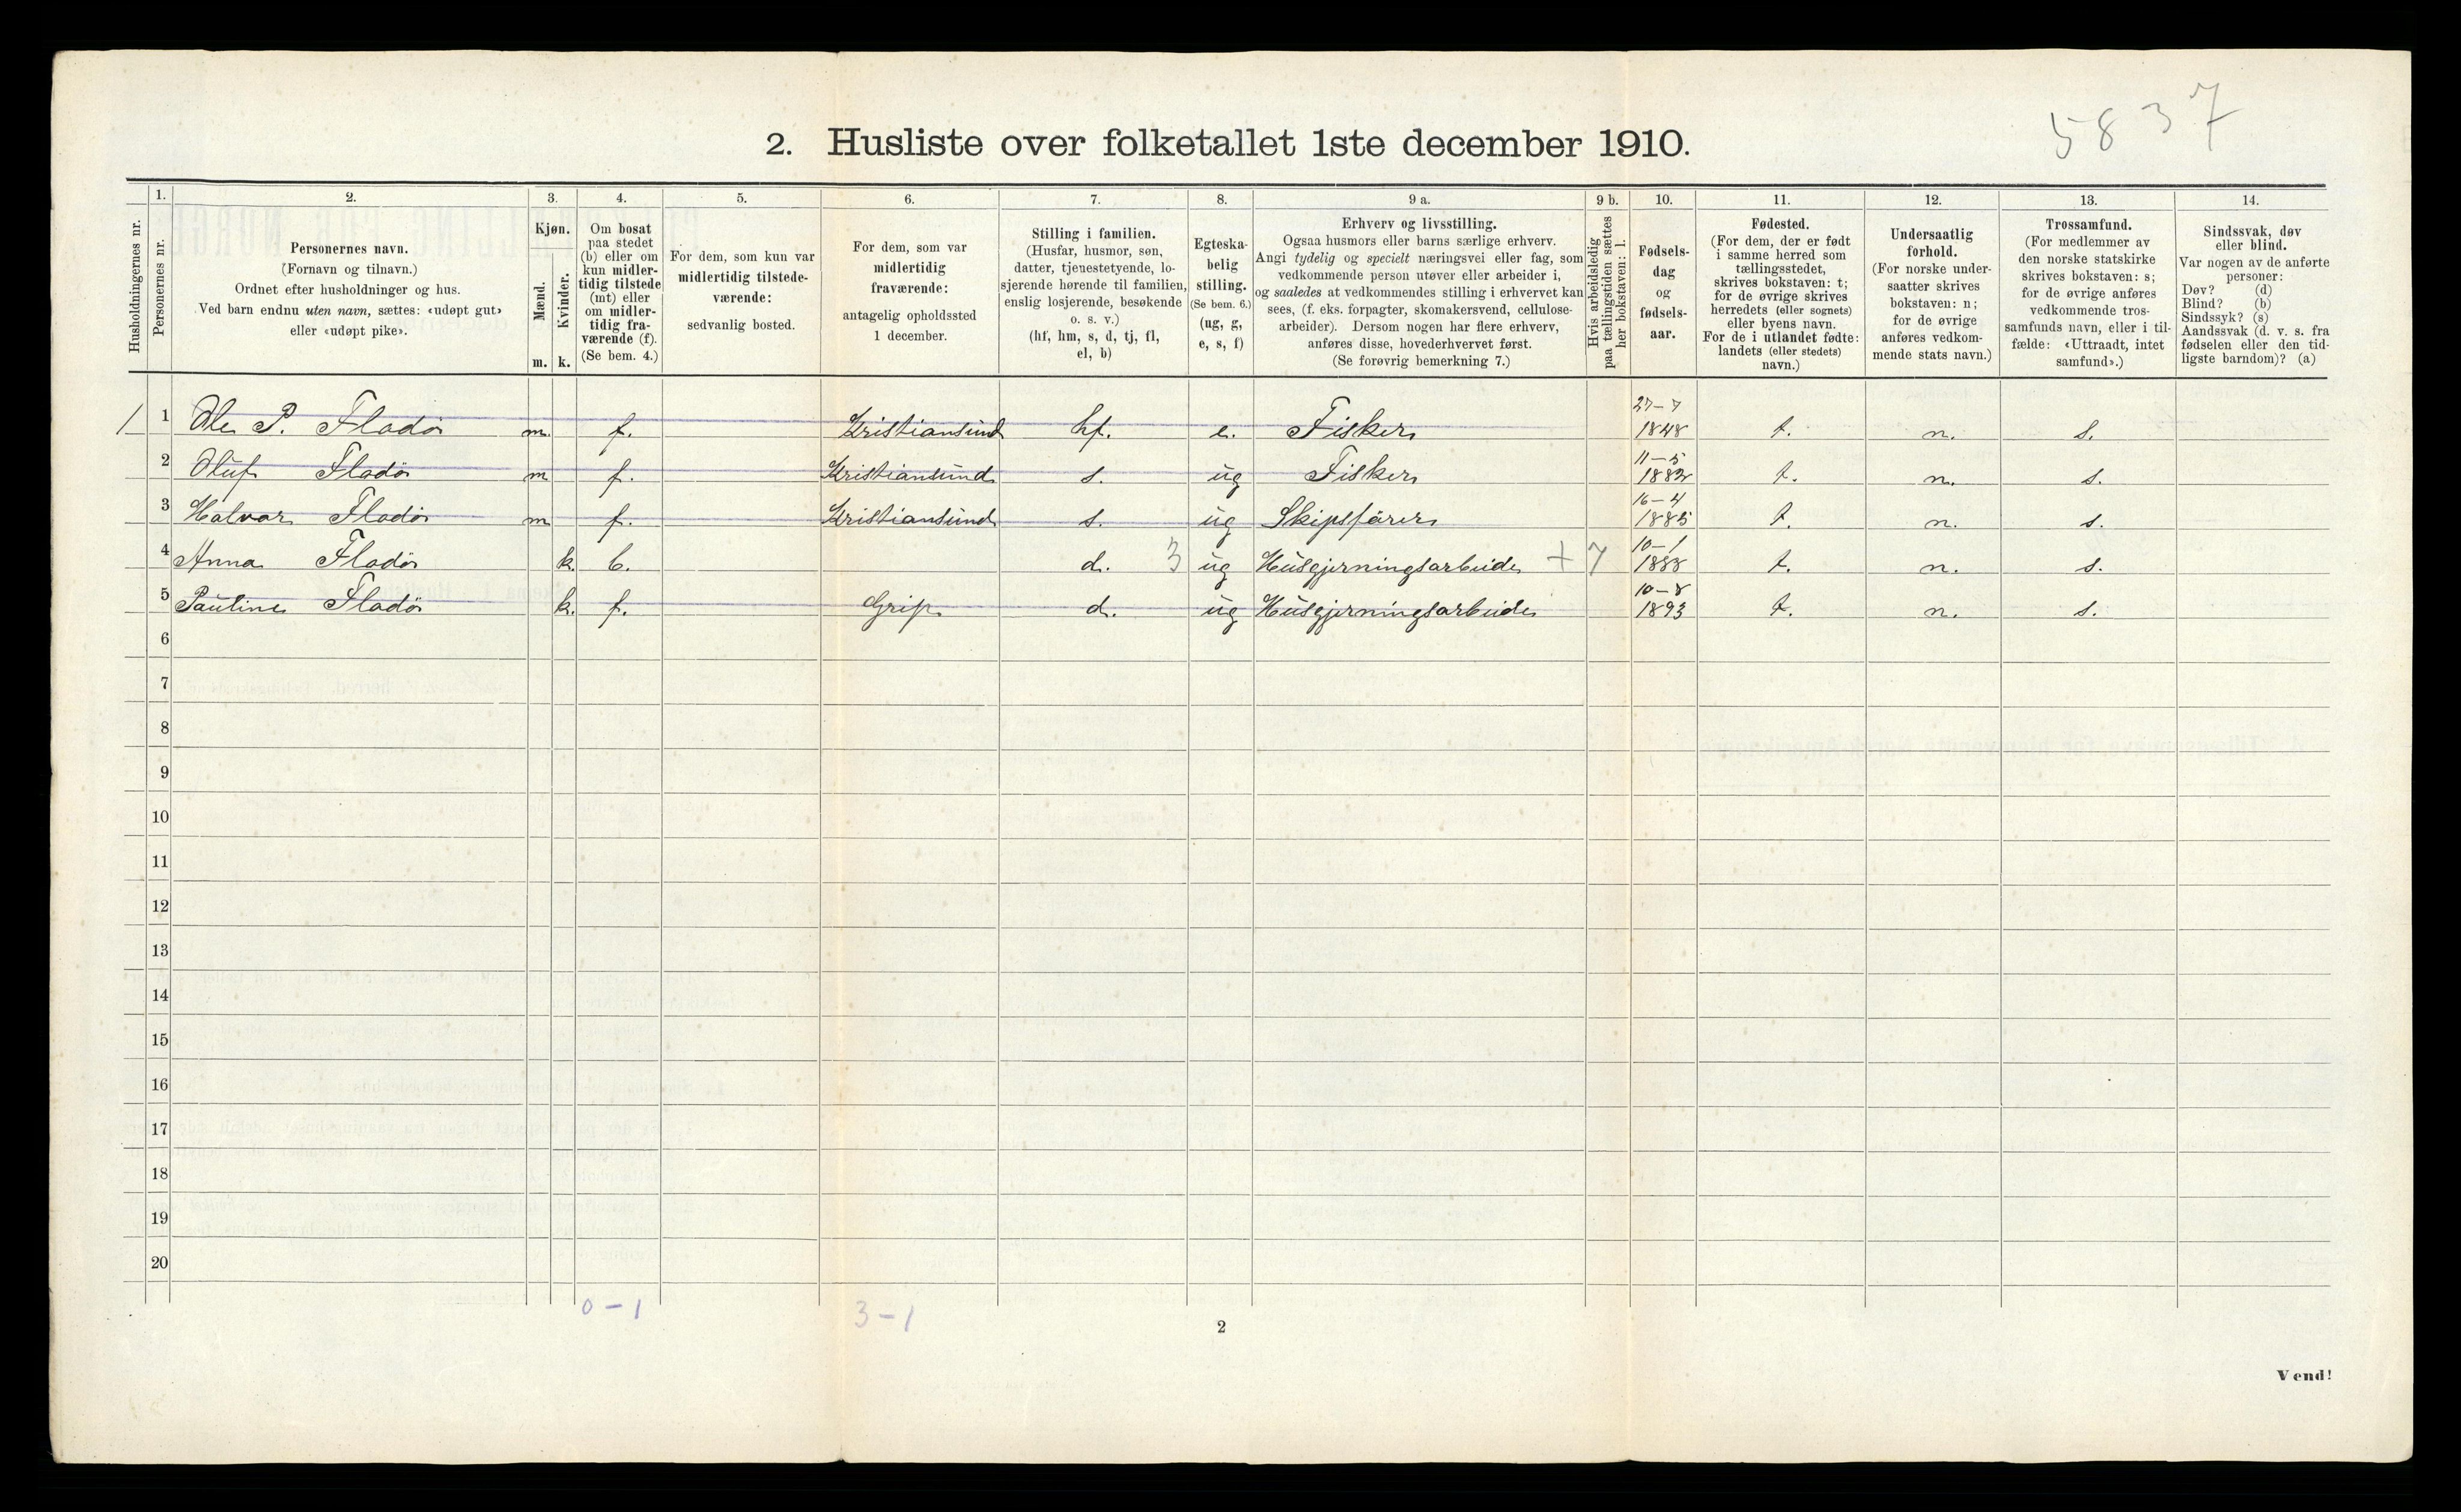 5837
2. Husliste over folketallet 1ste december 1910.
1. 2. 3. 4. 5. 6. 7. 8. 9 a. 9 b. 10. 11. 12. 13. 14.
Husholdningernes nr.
Personernes nr.
Personernes navn.
(Fornavn og tilnavn.)
Ordnet efter husholdninger og hus.
Ved barn endnu uten navn, sættes: «udøpt gut»
eller «udøpt pike».
Kjøn.
Mænd.
Kvinder.
m. k.
Om bosat
paa stedet
(b) eller om
kun midler-
tidig tilstede
(mt) eller
om midler-
tidig fra-
værende (f).
(Se bem. 4.)
For dem, som kun var
midlertidig tilstede-
værende:
sedvanlig bosted.
For dem, som var
midlertidig
fraværende:
antagelig opholdssted
1 december.
Stilling i familien.
(Husfar, husmor, søn,
datter, tjenestetyende, lo-
sjerende hørende til familien,
enslig losjerende, besøkende
o. s. v.)
(hf, hm, s, d, tj, fl,
el, b)
Egteska-
belig
stilling.
(Se bem. 6.)
(ug, g,
e, s, f)
Erhverv og livsstilling.
Ogsaa husmors eller barns særlige erhverv.
Angi tydelig og specielt næringsvei eller fag, som
vedkommende person utøver eller arbeider i,
og saaledes at vedkommendes stilling i erhvervet kan
sees, (f. eks. forpagter, skomakersvend, cellulose-
arbeider). Dersom nogen har flere erhverv,
anføres disse, hovederhvervet først.
(Se forøvrig bemerkning 7.)
Hvis arbeidsledig
paa tællingstiden sættes
her bokstaven: l.
Fødsels-
dag
og
fødsels-
aar.
Fødested.
(For dem, der er født
i samme herred som
tællingsstedet,
skrives bokstaven: t;
for de øvrige skrives
herredets (eller sognets)
eller byens navn.
For de i utlandet fødte:
landets (eller stedets)
navn.)
Undersaatlig
forhold.
(For norske under-
saatter skrives
bokstaven: n;
for de øvrige
anføres vedkom-
mende stats navn.)
Trossamfund.
(For medlemmer av
den norske statskirke
skrives bokstaven: s;
for de øvrige anføres
vedkommende tros-
samfunds navn, eller i til-
fælde: «Uttraadt, intet
samfund».)
Sindssvak, døv
eller blind.
Var nogen av de anførte
personer:
Døv? (d)
Blind? (b)
Sindssyk? (s)
Aandssvak (d. v. s. fra
fødselen eller den tid-
ligste barndom)? (a)
1 1 Ole P. Fladø m. f. Kristiansund hf. e. Fisker 27-7 1848 t. n. s.
2 Oluf Fladø m f. Kristiansund s. ug Fisker 11-5 1882 t. n. s.
3 Halvar Fladø m f. Kristiansund s. ug Skipsfører 16-4 1885 t. n. s.
4 Anna Fladø k. b. d. 3 ug Husgjerningsarbeide + 7 10-1 1888 t. n. s.
5 Pauline Fladø k. f. Grip d. ug Husgjerningsarbeide 10-8 1893 t. n. s.
6
7
8
9
10
11
12
13
14
15
16
17
18
19
20
0-1 3-1
2
Vend!